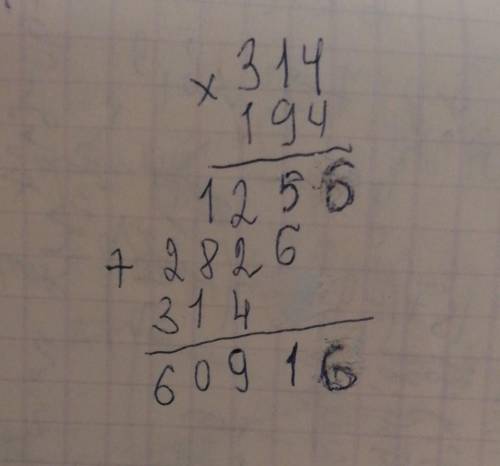 × 314
194
1256
+ 2826
314
60916